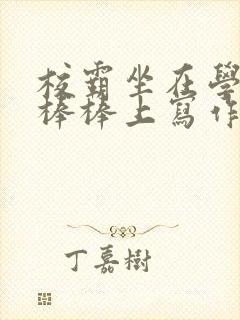 校霸坐在學
棒棒上寫作
丁嘉樹